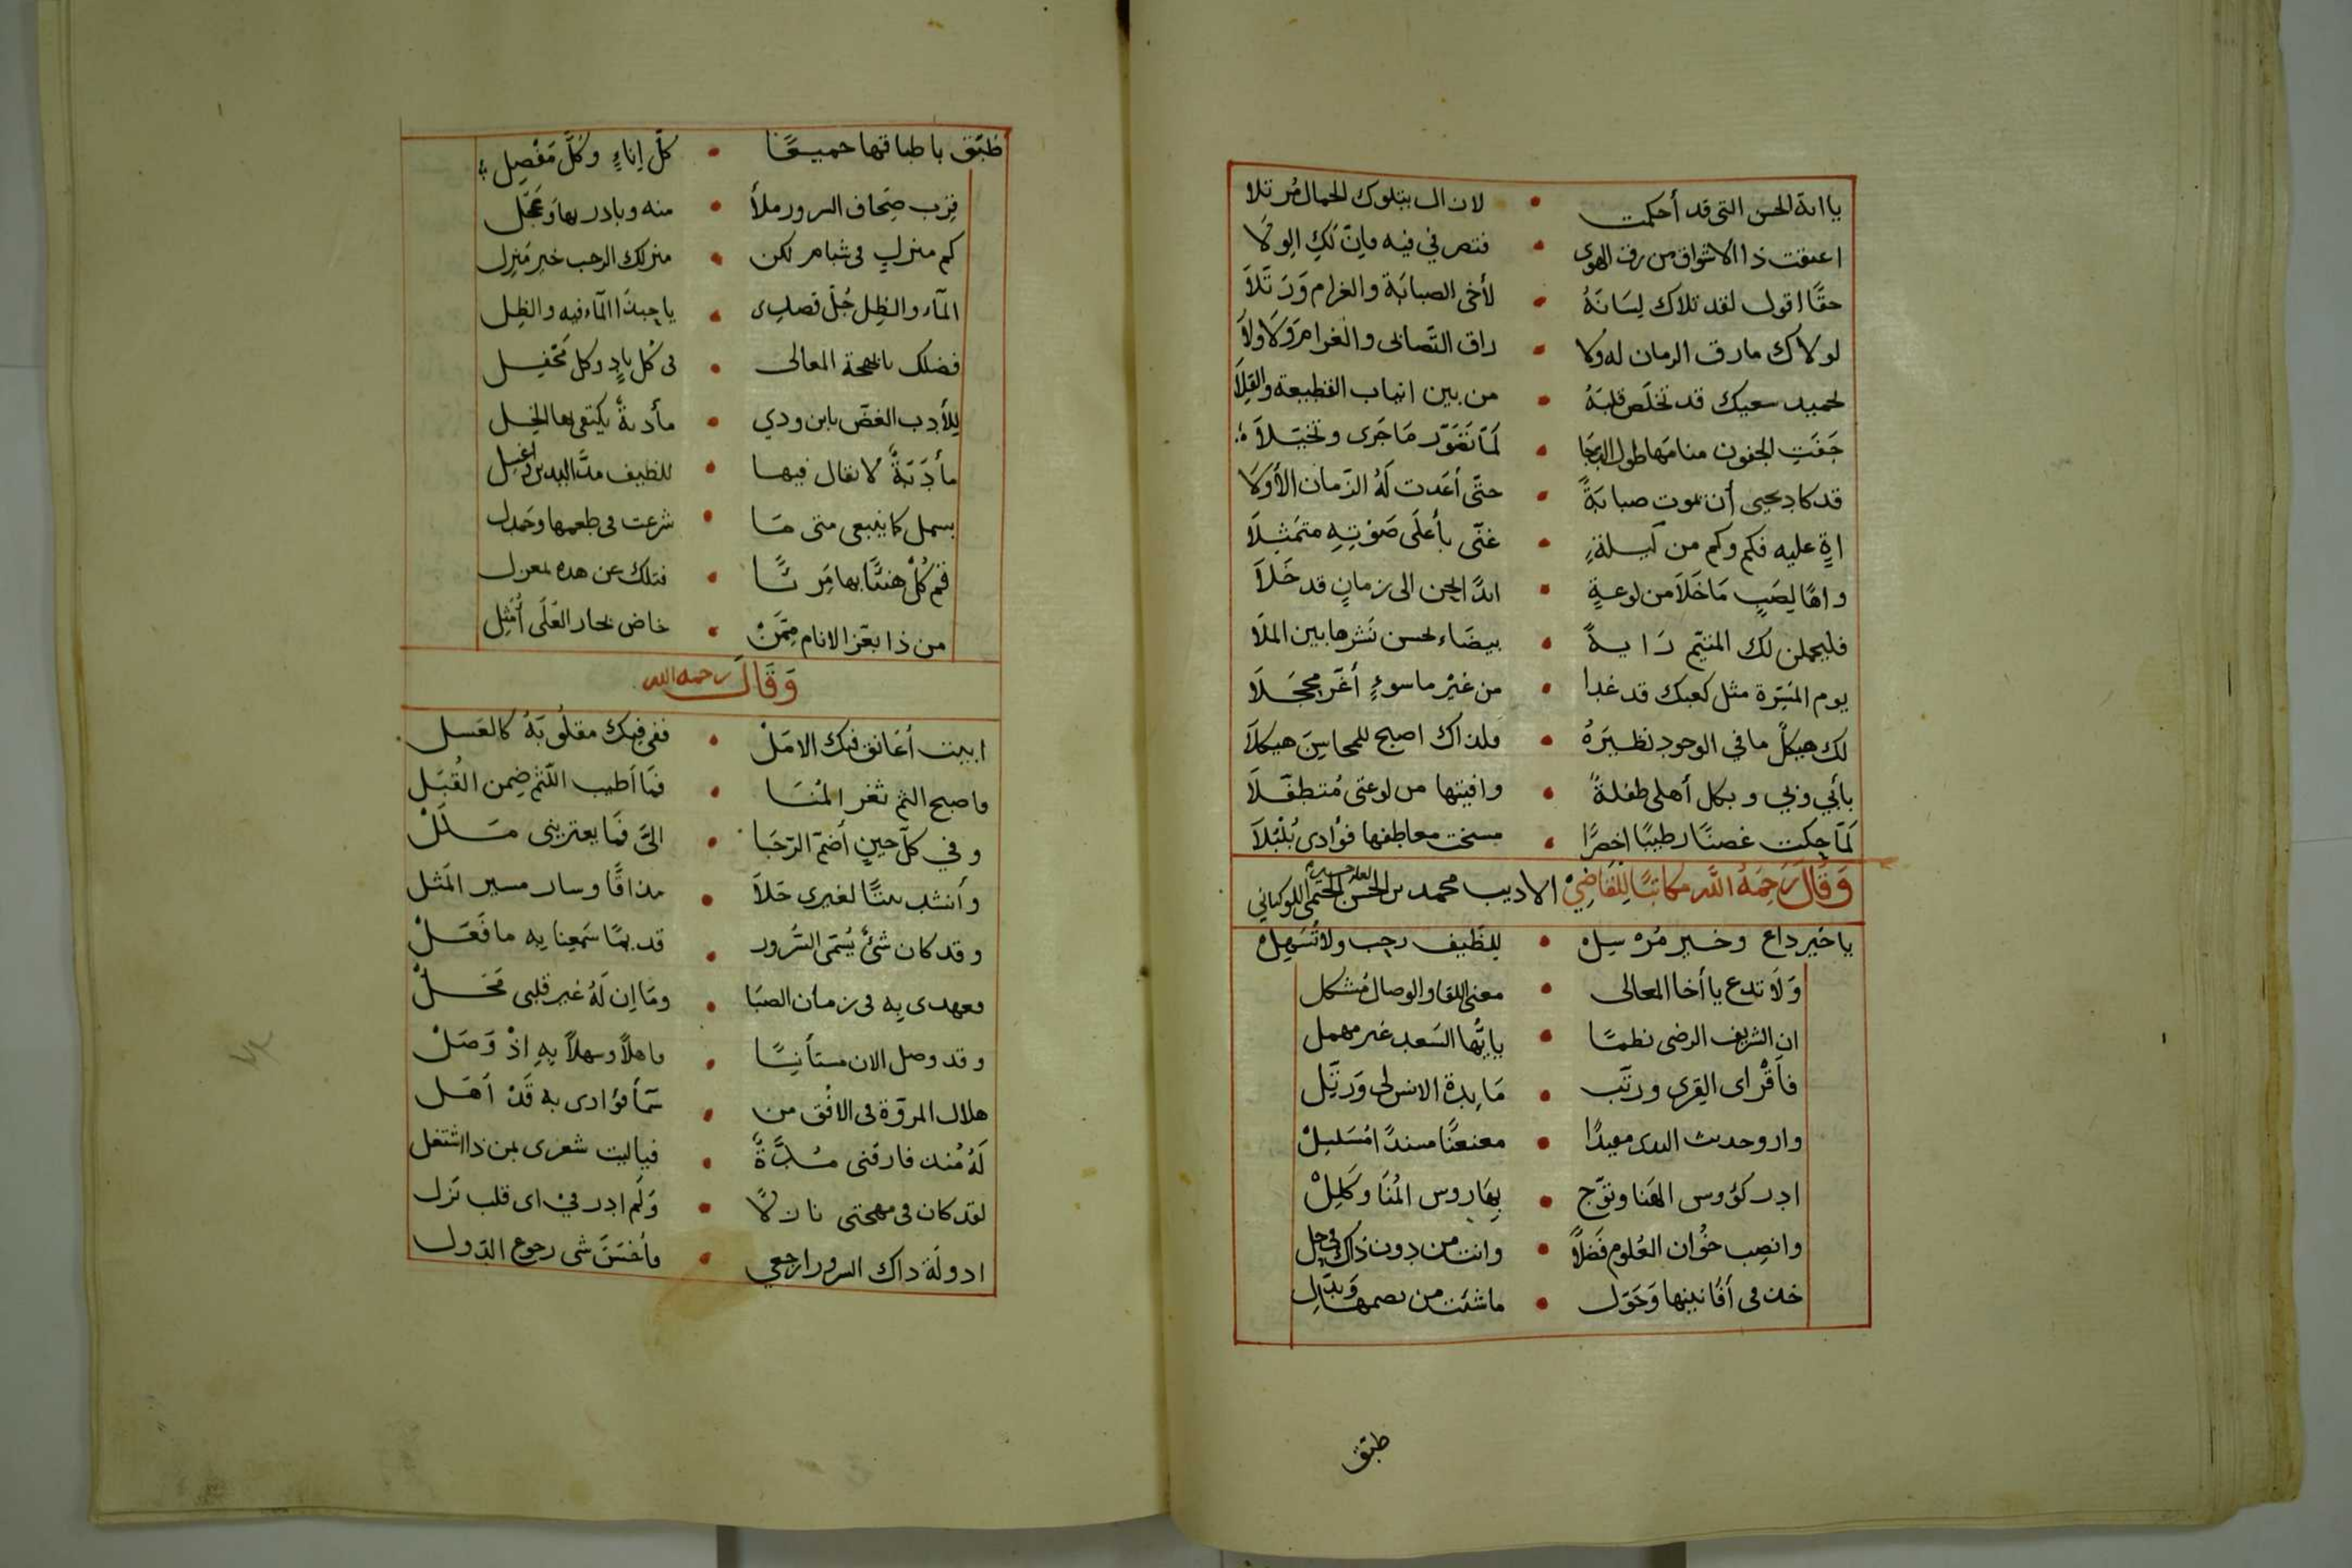 يااية الحسن التى قد أحكمت • لازال يتلوك الجمال مُرتلا
اعتقت ذا الاشواق من رق الهوى • فتصرفي فيه فإنّ لكِ الولَا
حقًا اقول لقد تلاك لِسَانَهُ • لأخى الصبابَة والغرام وَرَتَّلاَ
لولاك مارق الزمان له ولا • راق التّصابى والغرامَ وَلا ولاَ
لحميد سعيك قد تخلّص قلبَهُ • من بين انياب القطيعة والقِلاَ
جَفَتِ الجفون منامَها طول الدجَا • لَمّا تَصَوّر مَا جَرى وتخيّلاَ
قد كاد يحيى أن يموت صبابَةً • حتّى أعَدت لَهُ الزّمان الأوّلَا
اهٍ عليه فكم وكم من لَيلةٍ • غنّى بأعلَى صَوْتِهِ متمَثِلاَ
واهًا لِصَبٍ مَا خَلاَ من لوعةٍ • ابدًا يحن الى زمانٍ قد خَلاَ
فليحملن لك المتيّم رَايةً • بيضَاء لحسن نَشرها بين الملَا
يوم المَسَرّة مثل كعبك قد غدا • من غيْر ما سوءٍ أغّر محجَلاَ
لك هيكلٌ ما في الوجود نظيرَهُ • فلذاك اصبح للمحاسِنَ هيكلاَ
بأبي وبي وبكل أهلى طفلةً • وافيتها من لوعتى مُتطفّلاَ
لَمّا حكت غصنًا رطيبًا اخضرًا • مسخت معاطفها فؤادى بُلْبُلاَ
وَقَالَ رَحِمَهُ اللَّه مكاتبًا لِلقَاضِيْ الاديب محمد بن الحسن الحَيمى الكوكبانى
ياخَير داع وخير مُرْسِلِ • لِلظيف رحب ولا تُسَهِلِ
وَلاَ تدع ياأخا المعالى • معنى اللقا والوصال مُشكل
ان الشريف الرضى نظمًا • يايُّها السَعد غير مهمل
فاَقْر اى القِرى ورتّب • مَايدة الانس لى وَرتّل
وارو حديث الندى معيدًا • معنعنًا مسندًا مُسَلسِلْ
ادر كؤوس الهَنا وتوّج • بِهَا روس المُنَا وكَلِلْ
وانصِب خُوان العُلوم فَضلاً • وانت من دون ذاك فى حِل
خذ فى أفَانينها وَحَوّل • ماشئت من بصمها وَبَدّلِ
طبّق
طَبّق باطباقها جميعًا • كلّ إناءٍ وكُلّ مَفْصِل
قِرّب صِحَاف السرور ملأً • منه وبادر بها وَعجّل
كم منزلٍ فى شبام لكن • منزلك الرحب خير مَنزِل
المآء والظِل جُلّ قصدى • ياحبذَا المآء فيه والظِل
فضلك يابهجة المعالى • فى كُل نادٍ وكل مَحْفِل
لِلأدب الغضّ يابن ودي • مأدبةٌ يكتفى بها الخِل
مأدَبَةٌ لا يقال فيها • للظيف مدّ اليدين وَاغسِل
بسمل كما ينبغى متى مَا • شرعت فى طعمها وحَمدل
قم كُلْ هنيًّا بها مَريًّا • فتلك عن هذه بمعزل
من ذا بعَز الانام مِمّنْ • خاض بحار العُلَى أمْثِل
وَقَالَ رحمه الله
ابيت أعَانق فيك الامَلْ • ففى فيك مقلُوبَهُ كالعَسل
واصبح الثم ثغر المُنَا • فَمَا أطيب اللّثم ضِمن القُبَل
وفي كلّ حينٍ أضمّ الرّجَا • الىَّ فَمَا يعترينى مَلَلْ
وأنشد بيتًا لغيرى حَلاَ • مذاقًا وسار مسير المَثل
وقد كان شئٌ يُسَمَى السُّرور • قديمًا سَمَعِنا بِه ما فَعَلْ
فعهدى بِه فى زمان الصبَا • ومَا اِن لَهُ غير قلبى مَحَلْ
وقد وصل الان مستأنِسًا • فاهلاً وسهلاً بِهِ اذْ وَصَلْ
هلال المروّة فى الافْق من • سَمَا فؤادى به قَدْ اَهَل
لَهُ مُنذ فارقنى مُدَّةً • فياليت شعرى بمن ذا اشتغل
لقد كان فى مهجتى نازلاً • وَلَم ادر فيْ اى قلب نَزل
ادولَة ذاك السرور ارجعي • فأحْسَنَ شى رجوع الدّول